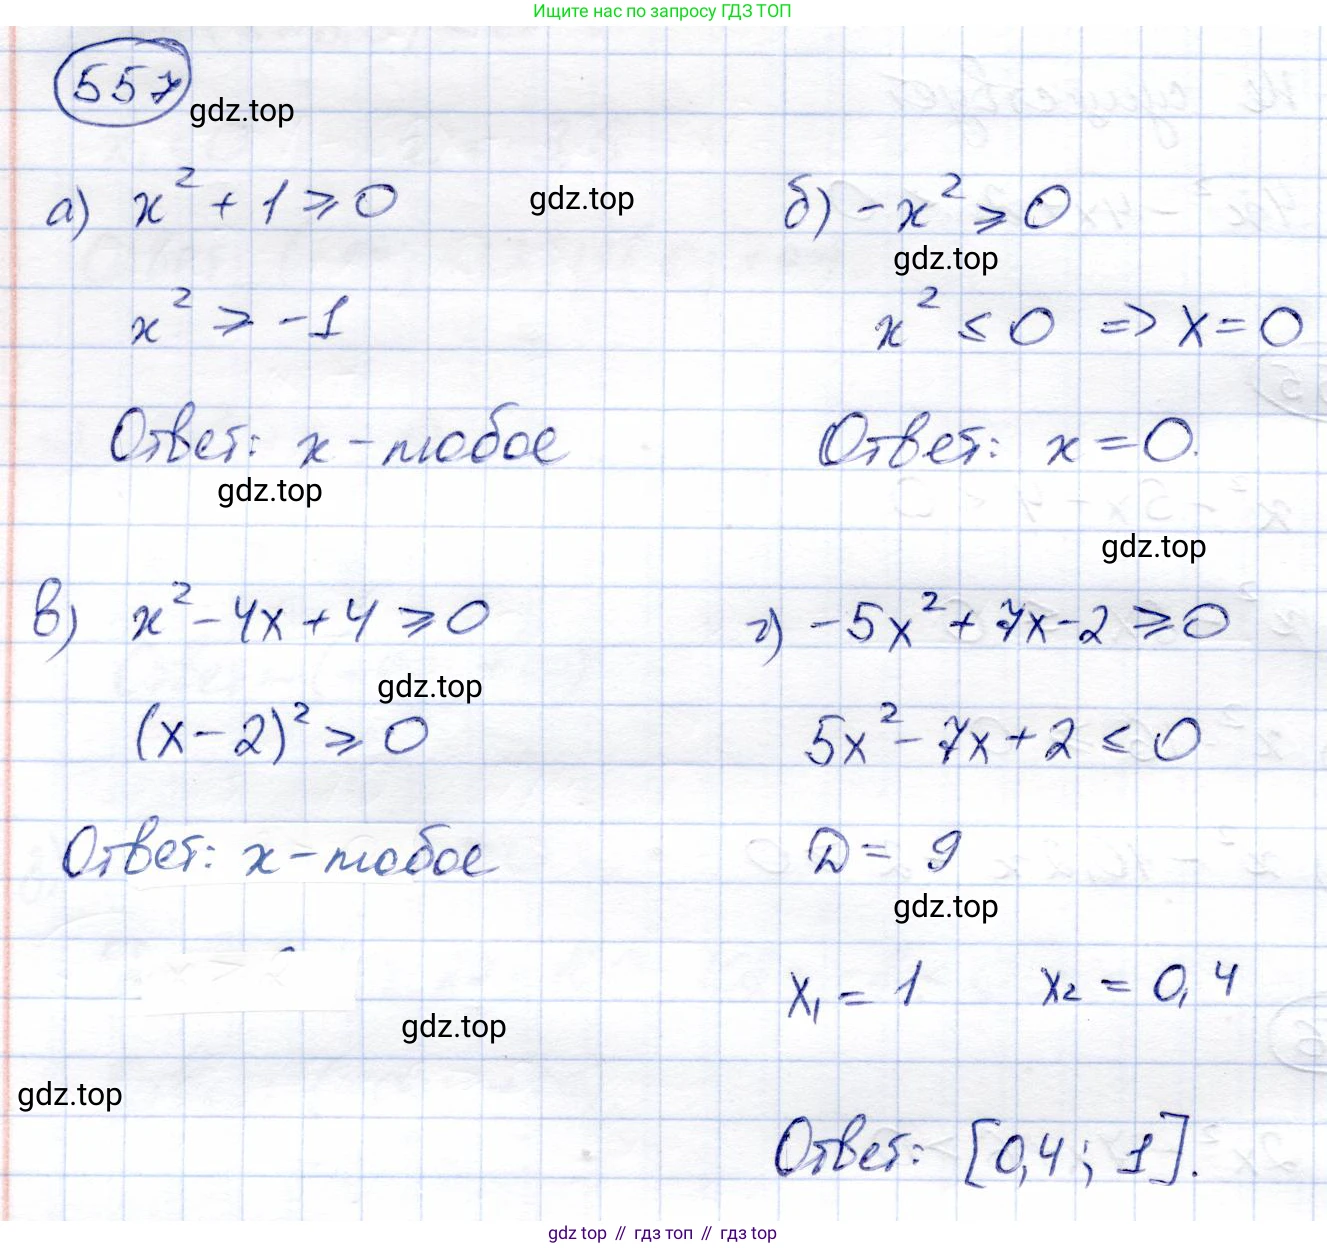 Ищите нас по запросу ГДЗ ТОП
557
gdz.top
а) x² + 1 ⩾ 0
gdz.top
x² ⩾ -1
Ответ: x - любое
gdz.top
б) -x² ⩾ 0
gdz.top
x² ≤ 0 => x = 0
Ответ: x = 0.
gdz.top
в) x² - 4x + 4 ⩾ 0
gdz.top
(x - 2)² ⩾ 0
Ответ: x - любое
gdz.top
gdz.top
г) -5x² + 7x - 2 ⩾ 0
5x² - 7x + 2 ≤ 0
D = 9
gdz.top
x₁ = 1 x₂ = 0,4
Ответ: [0,4; 1].
gdz top // гдз топ // гдз top